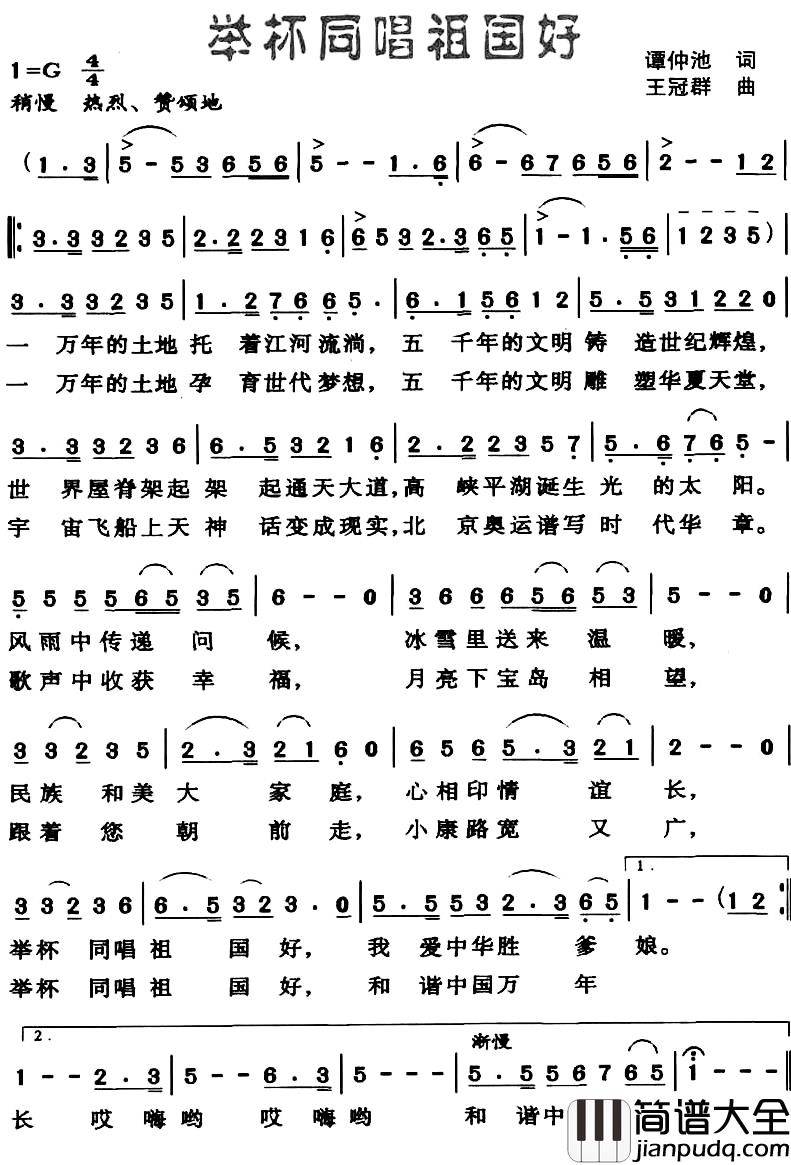 举杯同唱祖国好
谭仲池 词
1=G 4/4
王冠群 曲
稍慢 热烈、赞颂地
(1.3 | 5-53656 | 5--1.6 | 6-67656 | 2--12
3.33235 | 2.22316 | 6532.365 | 1-1.56 | 1235)
3.33235 | 1.27665. | 6.15612 | 5.531220
一 万年的土地 托 着江河流淌, 五 千年的文明 铸 造世纪辉煌,
一 万年的土地 孕 育世代梦想, 五 千年的文明 雕 塑华夏天堂,
3.33236 | 6.53216 | 2.22357 | 5.6765-
世 界屋脊架起 架 起通天大道, 高 峡平湖诞生 光 的太 阳。
宇 宙飞船上天 神 话变成现实, 北 京奥运谱写 时 代华 章。
55556535 | 6--0 | 36665653 | 5--0
风雨中传递 问 候, 冰雪里送来 温 暖,
歌声中收获 幸 福, 月亮下宝岛 相 望,
33235 | 2.32160 | 6565.321 | 2--0
民族 和美 大 家 庭, 心相印情 谊 长,
跟着 您 朝 前 走, 小康路宽 又 广,
33236 | 6.5323.0 | 5.5532.365 | 1.
1--(12
举杯 同唱 祖 国 好, 我 爱中华胜 爹 娘。
举杯 同唱 祖 国 好, 和 谐中国万 年
2.
渐慢
1--2.3 | 5--6.3 | 5--- | 5.556765 | 1---
长 哎 嗨哟 哎 嗨哟 和 谐中
简谱大全
jianpudq.com